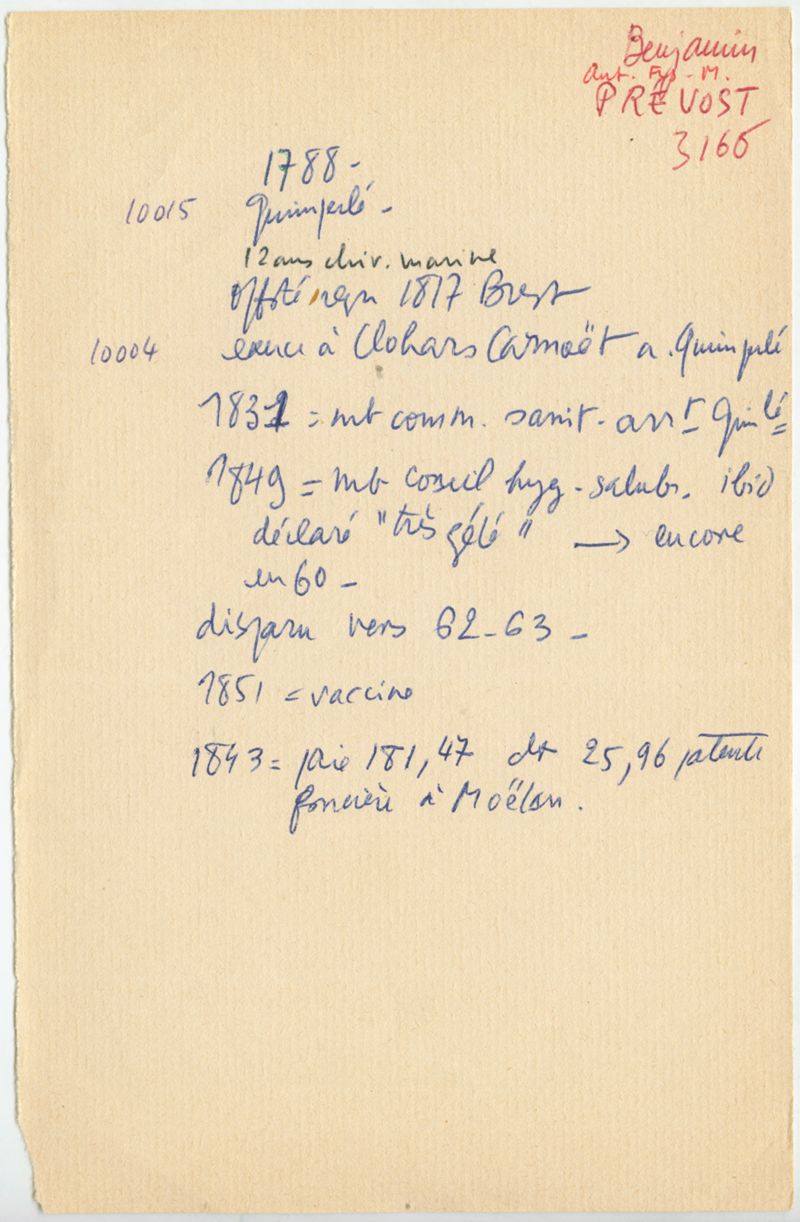 Benjamin
Ant. Fçs - M.
PREVOST
3166
1788 -
10015 Quimperlé -
12 ans chir. marine
offsté reçu 1817 Brest
10004 exerce à Clohars Carnoët a. Quimperlé
1831 = mb comm. sanit. arrt Quimlé
1849 = mb conseil hyg - salub. ibid
déclaré "très gêlé" → encore
en 60 -
disparu vers 62-63 -
1851 = vaccine
1843 = paie 181,47 dt 25,96 patente
foncière à Moëlan.